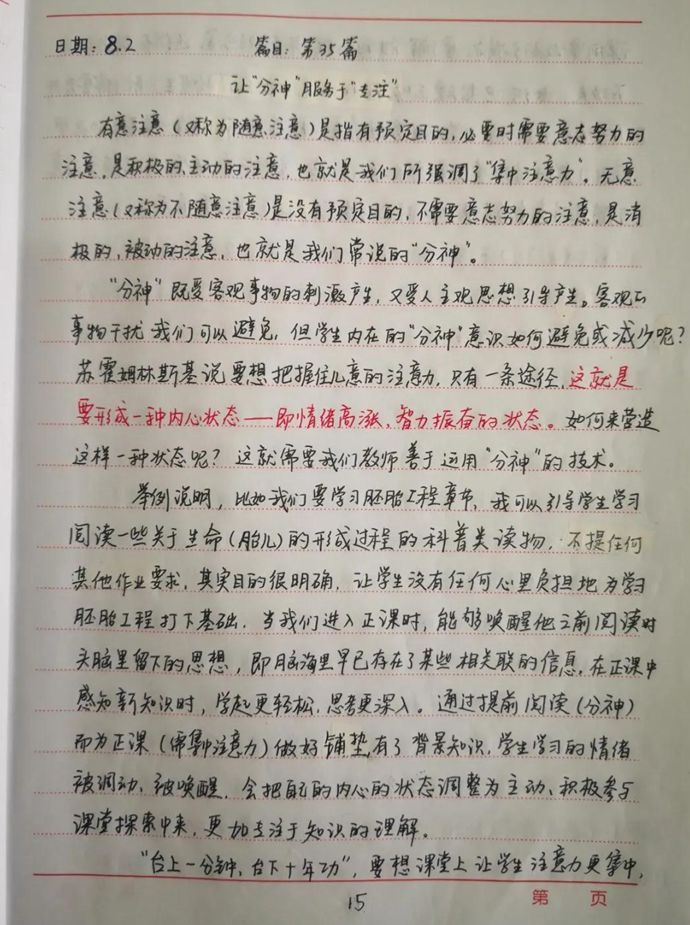 日期：8.2 篇目：第35篇
让“分神”服务于“专注”
有意注意（又称为随意注意）是指有预定目的，必要时需要意志努力的
注意，是积极的、主动的注意，也就是我们所强调了“集中注意力”。无意
注意（又称为不随意注意）是没有预定目的，不需要意志努力的注意，是消
极的，被动的注意，也就是我们常说的“分神”。
“分神”既受客观事物的刺激产生，又受人主观思想引导产生。客观
事物干扰我们可以避免，但学生内在的“分神”意识如何避免或减少呢？
苏霍姆林斯基说要想把握住儿童的注意力，只有一条途径，这就是
要形成一种内心状态——即情绪高涨，智力振奋的状态。如何来营造
这样一种状态呢？这就需要我们教师善于运用“分神”的技术。
举例说明，比如我们要学习胚胎工程章节，我可以引导学生学习
阅读一些关于生命（胎儿）的形成过程的科普类读物，不提任何
其他作业要求，其实目的很明确，让学生没有任何心里负担地为学习
胚胎工程打下基础。当我们进入正课时，能够唤醒他之前阅读时
头脑里留下的思想，即脑海里早已存在了某些相关联的信息，在正课中
感知新知识时，学起更轻松，思考更深入。通过提前阅读（分神）
而为正课（需集中注意力）做好铺垫，有了背景知识，学生学习的情绪
被调动、被唤醒，会把自己的内心的状态调整为主动、积极参与
课堂探索中来，更加专注于知识的理解。
“台上一分钟，台下十年功”，要想课堂上让学生注意力更集中，
15 第 页